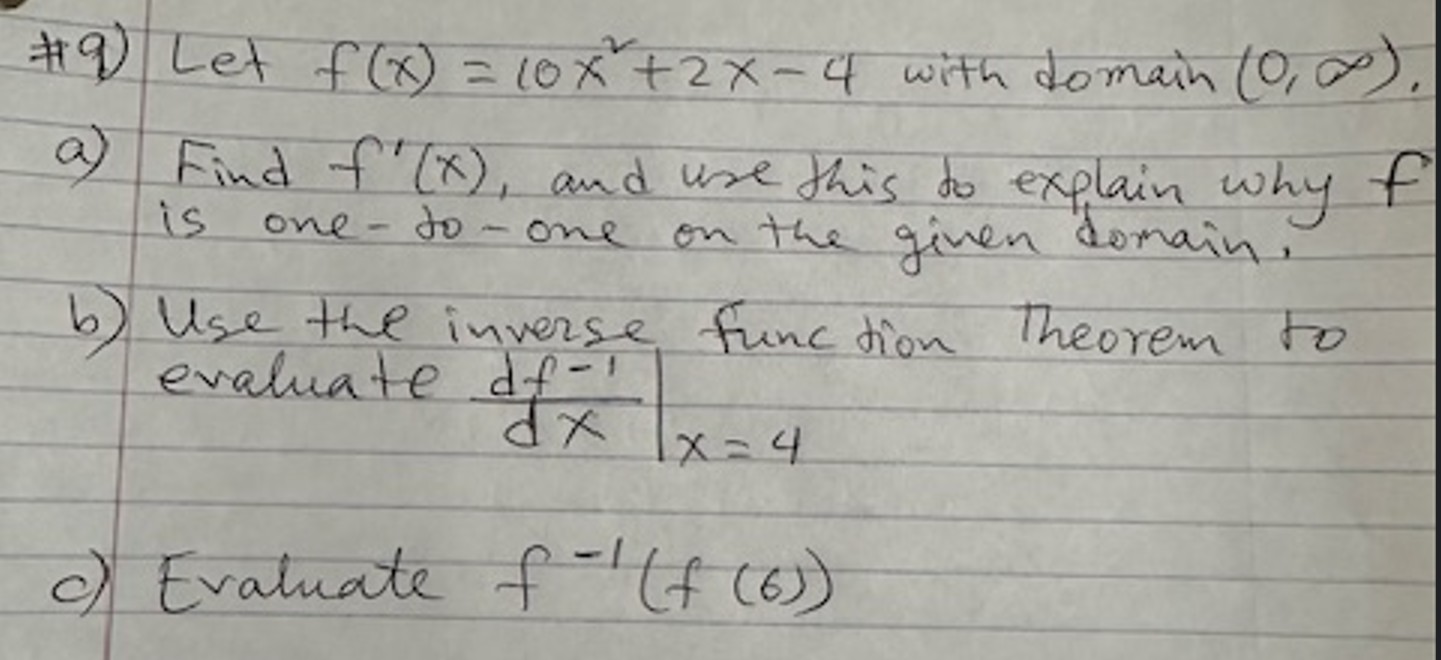 #9) Let f(x) = 10x²+2x-4 with domain (0, ∞).
a) Find f'(x), and use this to explain why f
is one-to-one on the given domain.
b) Use the inverse function Theorem to
evaluate df⁻¹/dx |x=4
c) Evaluate f⁻¹(f(6))